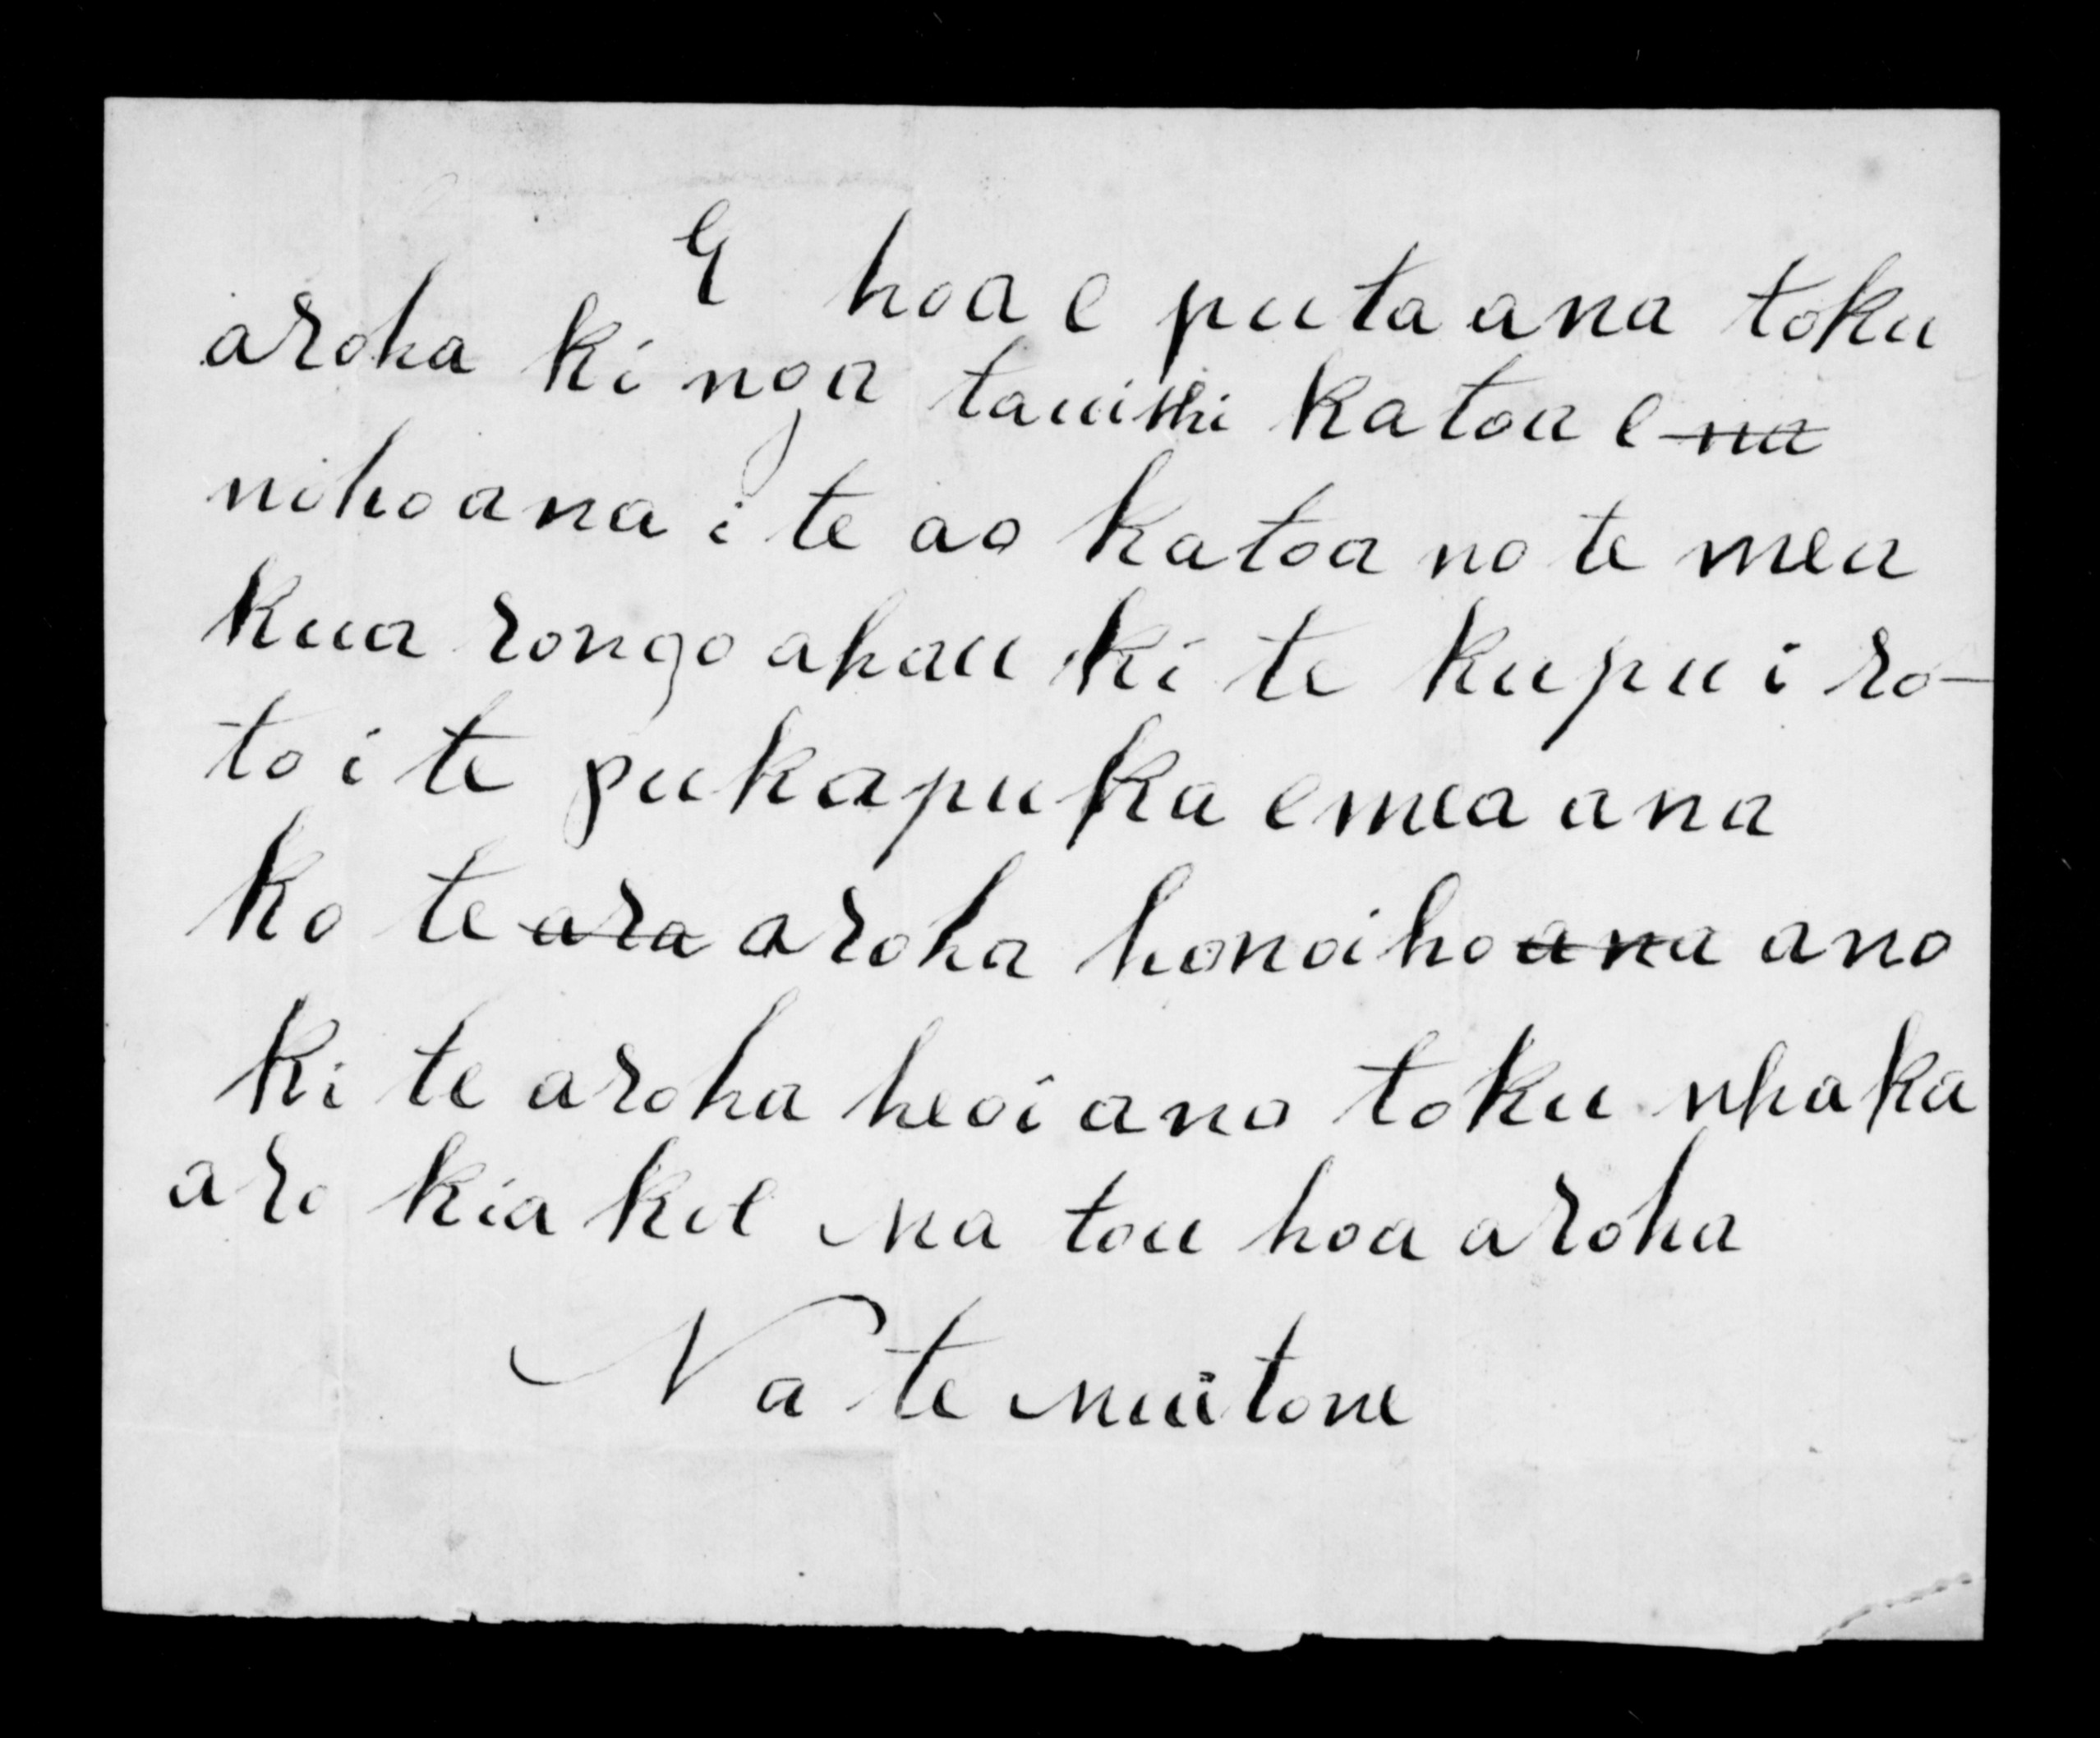 E hoa e puta ana toku
aroha ki nga tauiwhi katoa e na
noho ana i te ao katoa no te mea
kua rongo ahau ki te kupu i ro-
to i te pukapuka e mea ana
ko te ara aroha honoiho ana ano
ki te aroha heoi ano toku whaka
aro kia koe na tou hoa aroha
Na te muitone